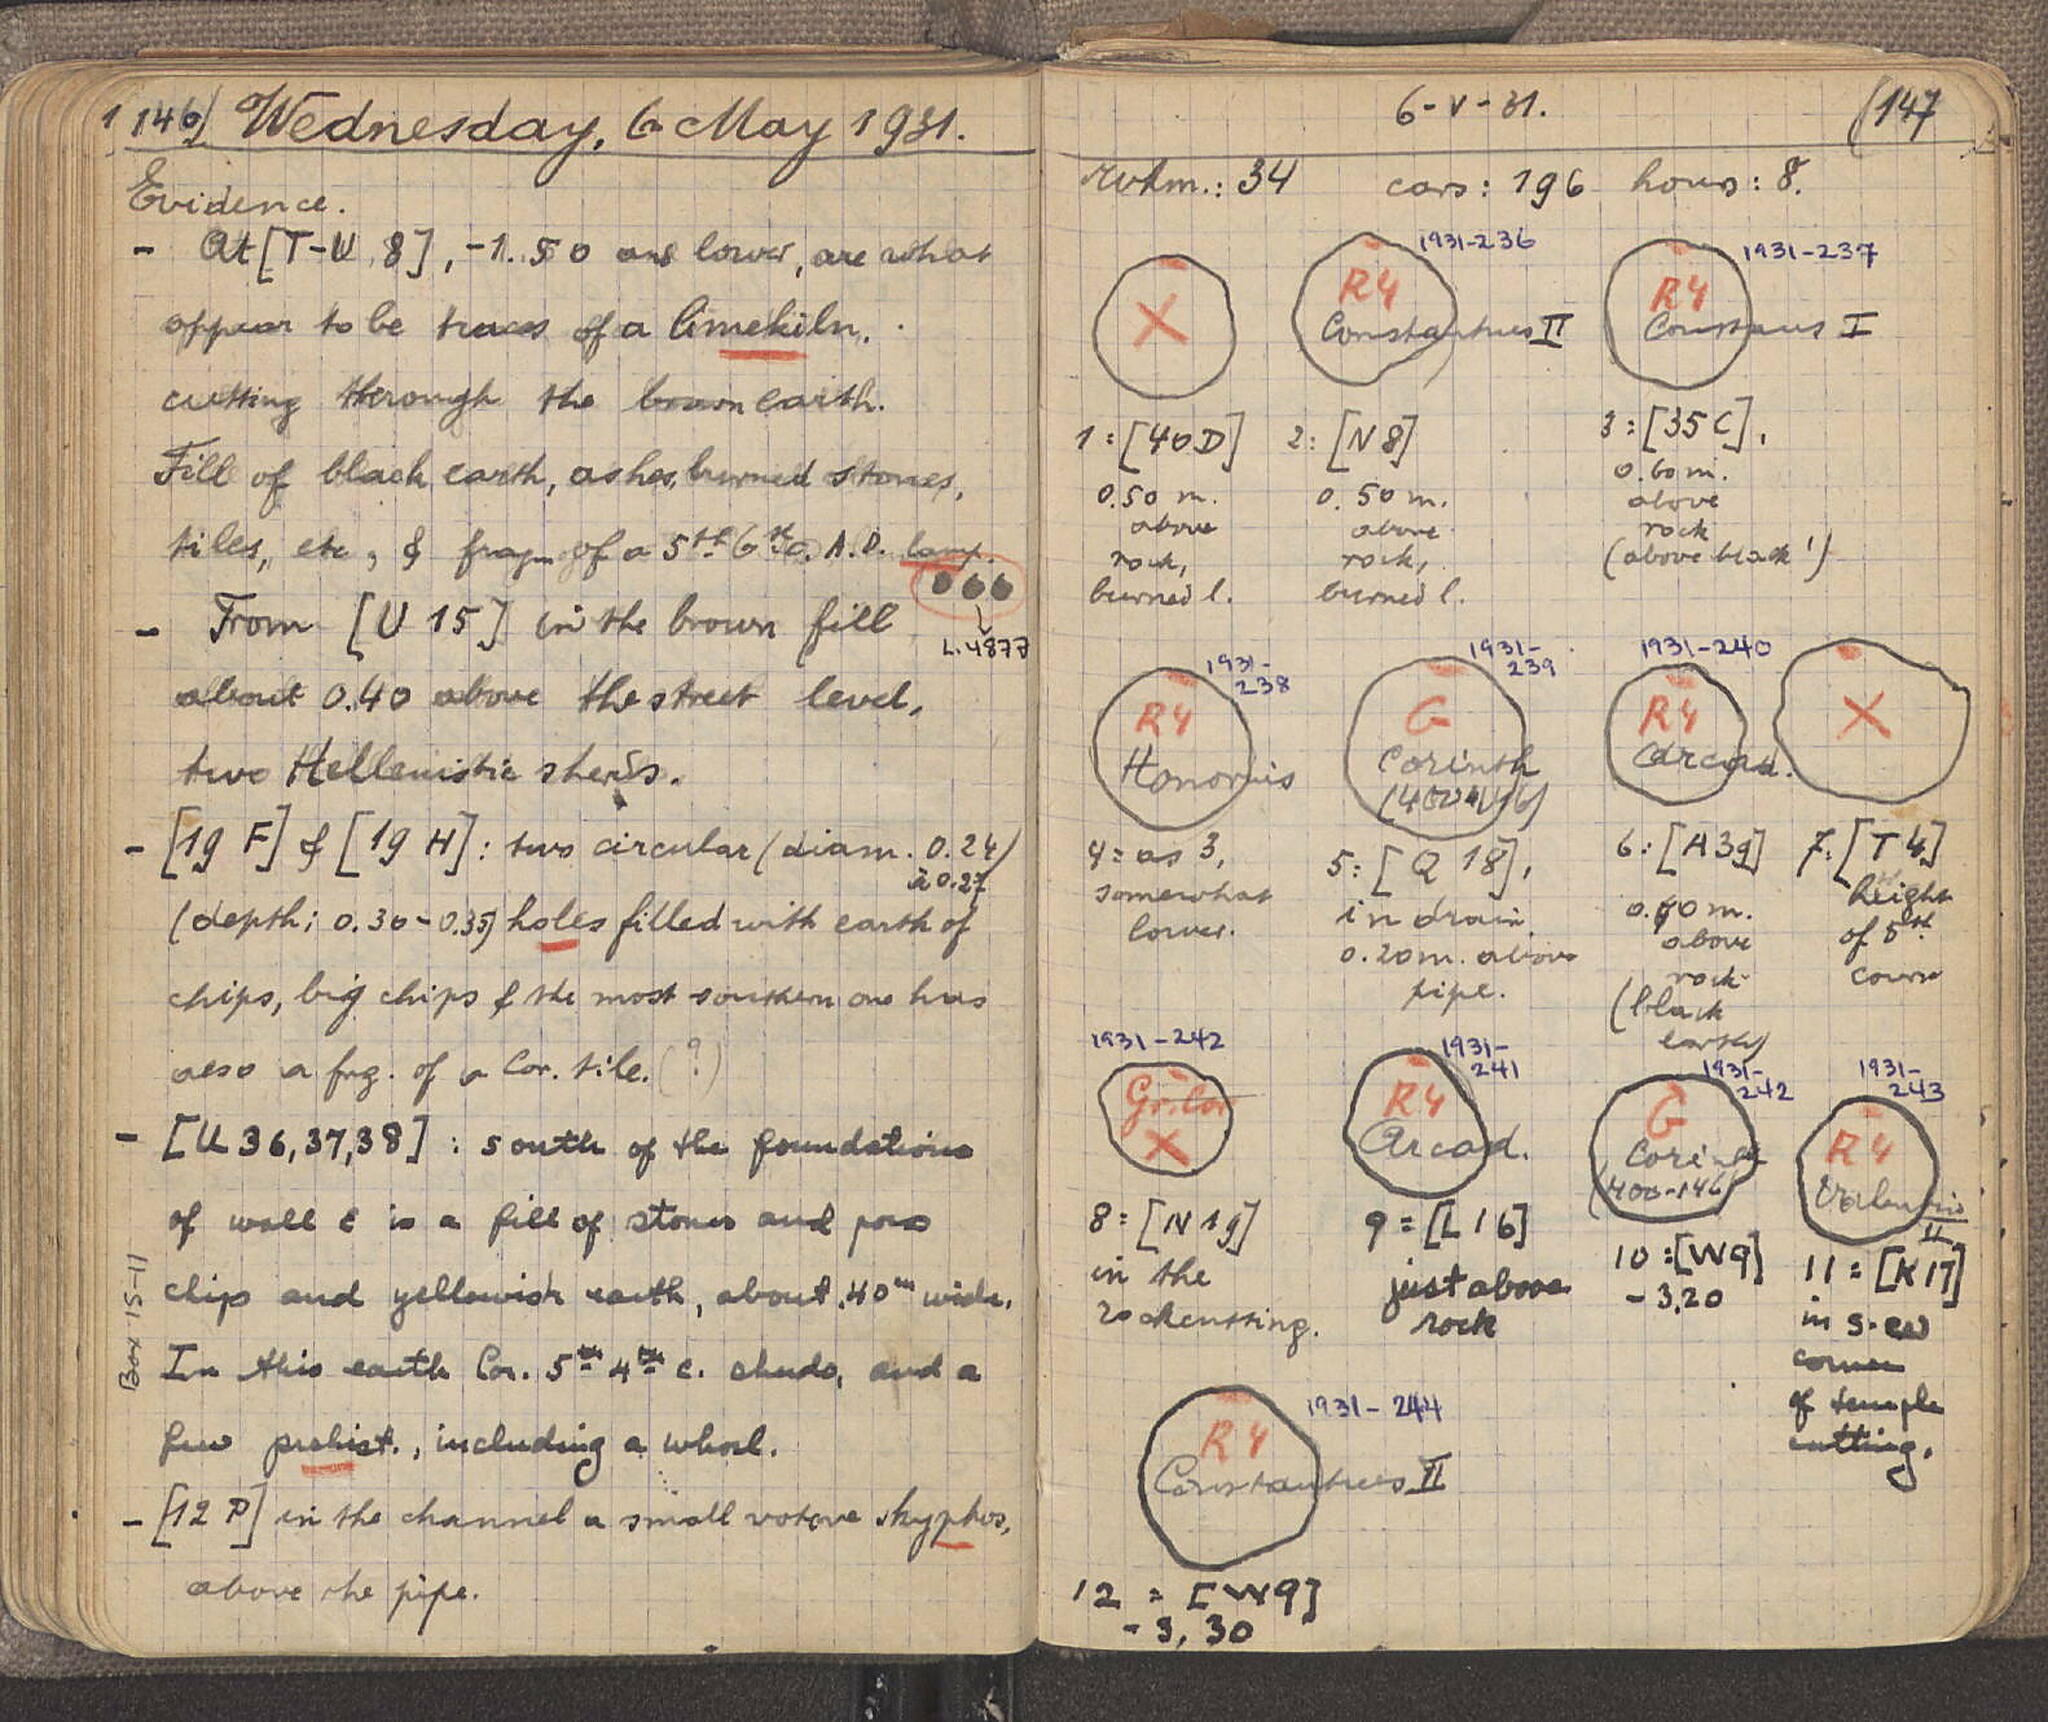 146) Wednesday, 6 May 1931.
Evidence.
- At [T-U 8], -1.50 and lower, are what
appear to be traces of a limekiln.
cutting through the brown earth.
Fill of black earth, ashes, burned stones,
tiles, etc, & fragm of a 5th 6th c. A.D. lamp.
066
L.4877
- From [U 15] in the brown fill
about 0.40 above the street level,
two Hellenistic sherds.
- [19 F] & [19 H]: two circular (diam. 0.24
à 0.27)
(depth: 0.30-0.35) holes filled with earth of
chips, big chips & the most southern one has
also a frg. of a Cor. tile. (?)
- [U 36, 37, 38] : south of the foundations
of wall E is a fill of stones and poros
chip and yellowish earth, about .40m wide.
In this earth Cor. 5th 4th c. sherds, and a
few prehist., including a whorl.
- [12 P] in the channel a small votive skyphos,
above the pipe.
Box 15-11
6-V-31. (147
cars: 196 hours: 8.
X
1931-236
R4
Constantius II
1931-237
R4
Constans I
1: [40D]
0.50 m.
above
rock,
burned l.
2: [N 8]
0.50 m.
above
rock,
burned l.
3: [35 C],
0.60 m.
above
rock
(above black !)
1931-
238
R4
Honorius
1931-
239
G
Corinth
(400-146)
1931-240
R4
Arcad.
X
4: as 3,
somewhat
lower.
5: [Q 18],
in drain
0.20m. above
pipe.
6: [A 39]
m.
above
rock
(black
earth)
7: [T 4]
height
of 5th
course
1931-242
Gr. Cor
X
1931-
241
R4
Arcad.
1931-
242
G
Corinth
(400-146)
1931-
243
R4
Valentinio
II
8: [N 19]
in the
rockcutting.
9: [L 16]
just above
rock
10: [W9]
-3,20
11: [K 17]
in S-W
corner
of temple
cutting.
1931-244
R4
Constantius II
12 = [W9]
-3,30